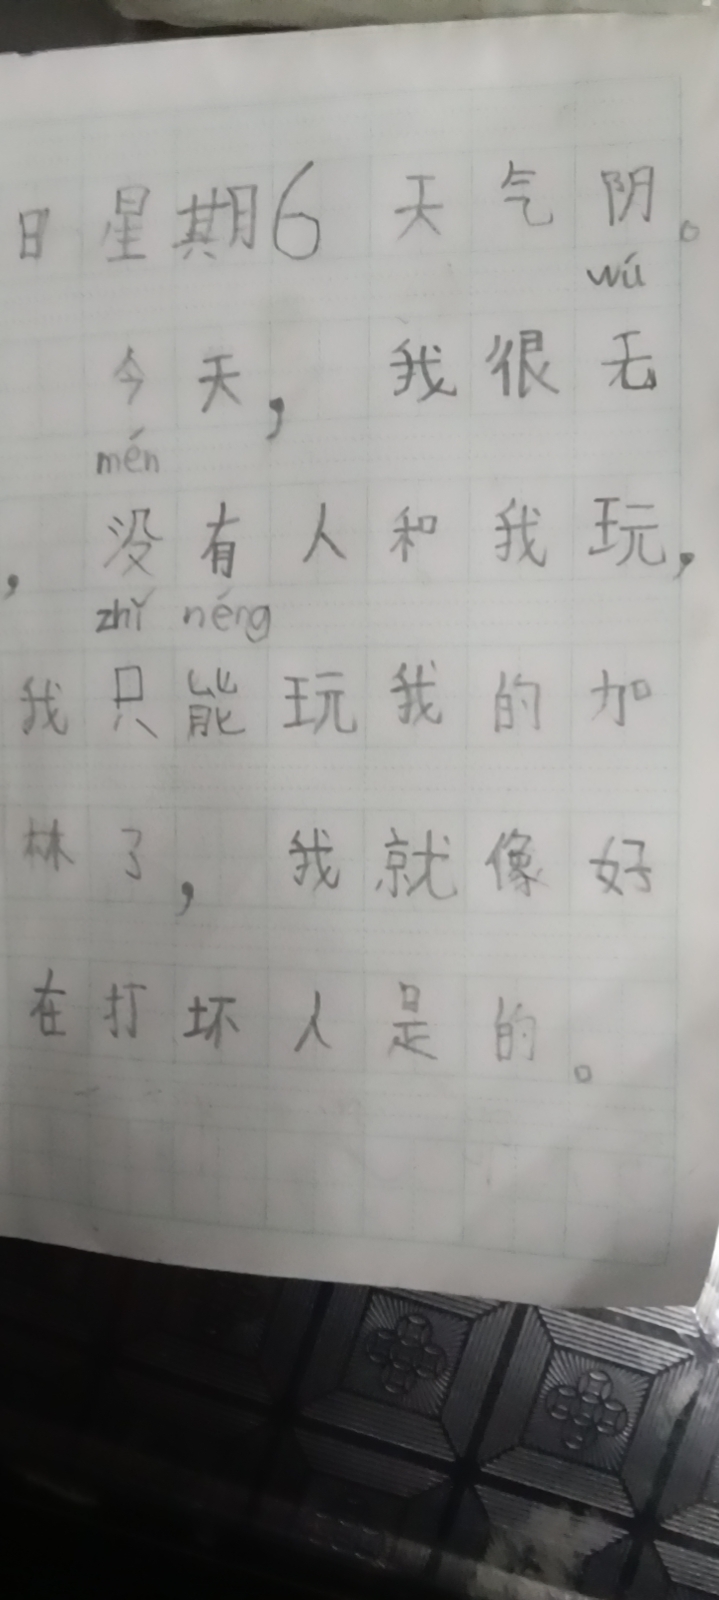 日星期6 天气阴。
wú
今天，我很无
mén
，没有人和我玩，
zhǐ néng
我只能玩我的加
林了，我就像好
在打坏人是的。